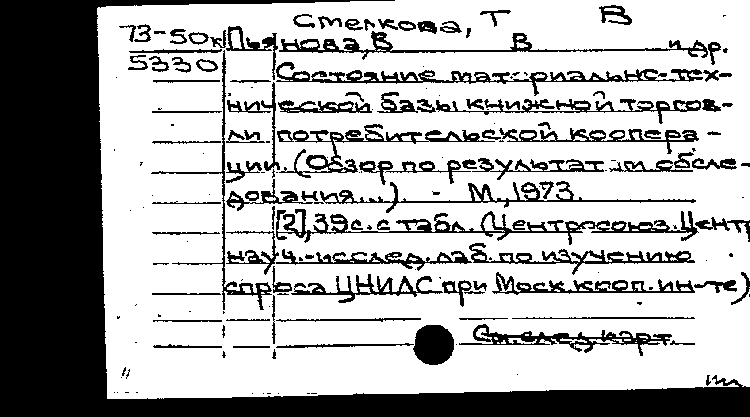 Смелкова, Т В
73-50к Пьянова, В В и др.
5330 Состояние материально-тех-
нической базы книжной торгов-
ли потребительской коопера-
ции. (Обзор по результатам обсле-
дования...). - М., 1973.
[2], 39 с. с табл. (Центросоюз. Центр
науч.-исслед. лаб. по изучению
спроса ЦНИЛС при Моск. кооп. ин-те)
См. след. карт.